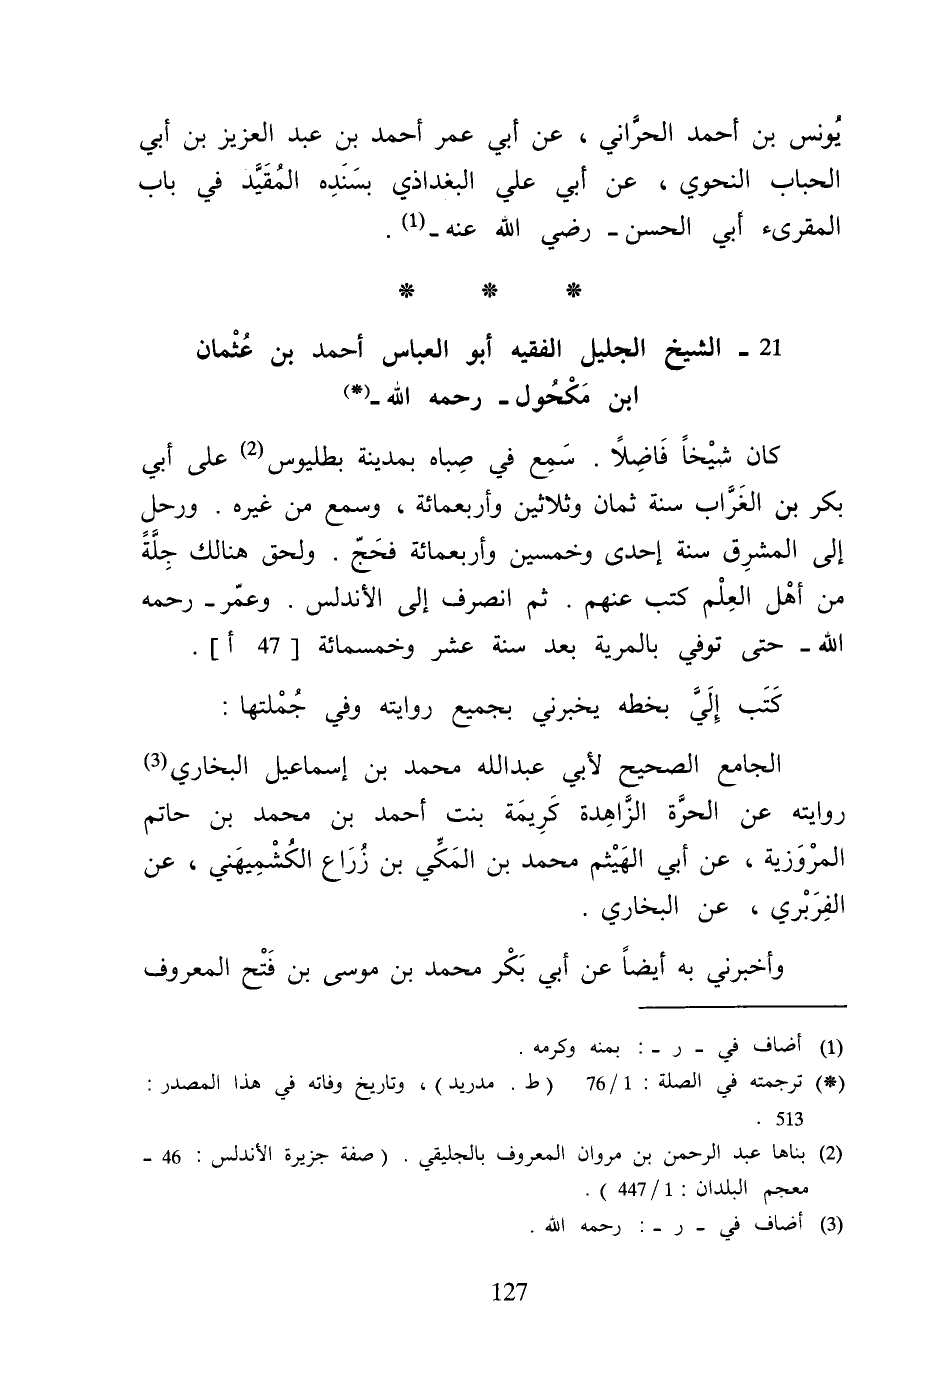 يُونس بن أحمد الحرَّاني ، عن أبي عمر أحمد بن عبد العزيز بن أبي
الحباب النحوي ، عن أبي علي البغداذي بسَنَدِه المُقَيَّد في باب
المقرىء أبي الحسن ـ رضي الله عنه ـ(1) .
* * *
21 ـ الشيخ الجليل الفقيه أبو العباس أحمد بن عُثْمان
ابن مَكْحُول ـ رحمه الله ـ(*)
كان شيْخاً فَاضِلاً . سَمِع في صِباه بمدينة بطليوس(2) على أبي
بكر بن الغَرَّاب سنة ثمان وثلاثين وأربعمائة ، وسمع من غيره . ورحل
إلى المشرِق سنة إحدى وخمسين وأربعمائة فحَجّ . ولحق هنالك جِلَّةً
من أهْل العِلْم كتب عنهم . ثم انصرف إلى الأندلس . وعمّر ـ رحمه
الله ـ حتى توفي بالمرية بعد سنة عشر وخمسمائة [ 47 أ ] .
كَتَب إِلَيَّ بخطه يخبرني بجميع روايته وفي جُمْلتها :
الجامع الصحيح لأبي عبدالله محمد بن إسماعيل البخاري(3)
روايته عن الحرَّة الزَّاهِدة كَرِيمَة بنت أحمد بن محمد بن حاتم
المرْوَزية ، عن أبي الهَيْثم محمد بن المَكِّي بن زُرَاع الكُشْمِيهَني ، عن
الفِرَبْري ، عن البخاري .
وأخبرني به أيضاً عن أبي بَكْر محمد بن موسى بن فَتْح المعروف
(1) أضاف في ـ ر ـ : بمنه وكرمه .
(*) ترجمته في الصلة : 1/ 76 ( ط . مدريد ) ، وتاريخ وفاته في هذا المصدر :
513 .
(2) بناها عبد الرحمن بن مروان المعروف بالجليقي . ( صفة جزيرة الأندلس : 46 ـ
معجم البلدان : 1/ 447 ) .
(3) أضاف في ـ ر ـ : رحمه الله .
127